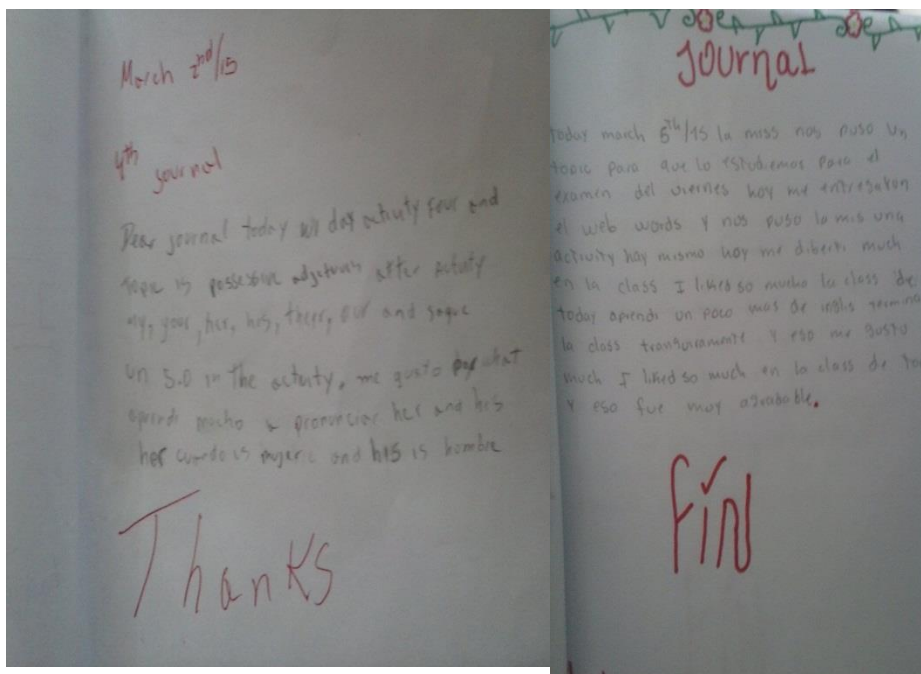 March 2nd/15
4th journal
Dear journal today we day activity four and
topic is possessive adjetives after activity
my, your, her, his, their, our and saque
un 5.0 in the activity, me gusto por what
aprendi mucho a pronunciar her and his
her cuando is mujeric and his is hombre
Thanks
JOURNAL
today march 5th/15 la miss nos puso un
topic para que lo estudiemos para el
examen del viernes hoy me entregaron
el web words y nos puso la mis una
activity hay mismo hoy me diberti much
en la class I liked so mucho la class de
today aprendi un poco mas de inglis termina
la class tranquilamente Y eso me gusto
much I liked so much en la class de
Y eso fue muy agradable.
fin